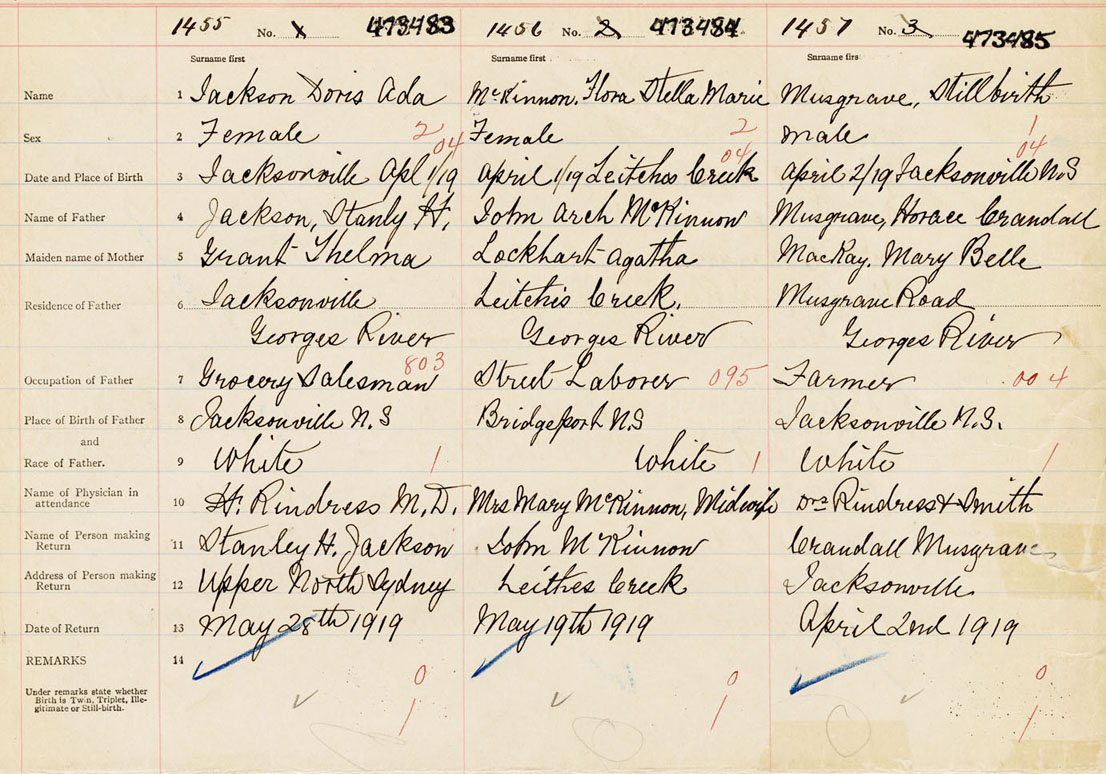 1455 No. 1 473483 1456 No. 2 473484 1457 No. 3 473485
Surname first Surname first Surname first
Name 1 Jackson Doris Ada McKinnon, Flora Stella Marie Musgrave, Stillbirth
Sex 2 Female 2 Female 2 Male 1
04 04 04
Date and Place of Birth 3 Jacksonville Apl 1/19 April 1/19 Leitches Creek April 2/19 Jacksonville N.S
Name of Father 4 Jackson, Stanly H. John Arch McKinnon Musgrave, Horace Crandall
Maiden name of Mother 5 Grant Thelma Lockhart Agatha MacKay, Mary Belle
Residence of Father 6 Jacksonville Leitchis Creek. Musgrave Road
Georges River Georges River Georges River
Occupation of Father 7 Grocery Salesman 803 Street Laborer 095 Farmer 004
Place of Birth of Father 8 Jacksonville N.S Bridgeport N.S Jacksonville N.S.
and
Race of Father. 9 White 1 White 1 White 1
Name of Physician in
attendance 10 H. Rindress M.D. Mrs Mary McKinnon, Midwife Drs Rindress & Smith
Name of Person making
Return 11 Stanley H. Jackson John McKinnon Crandall Musgrave
Address of Person making
Return 12 Upper North Sydney Leithes Creek Jacksonville
Date of Return 13 May 28th 1919 May 19th 1919 April 2nd 1919
REMARKS 14
0 0 0
Under remarks state whether
Birth is Twin, Triplet, Ille-
gitimate or Still-birth.
1 1 1